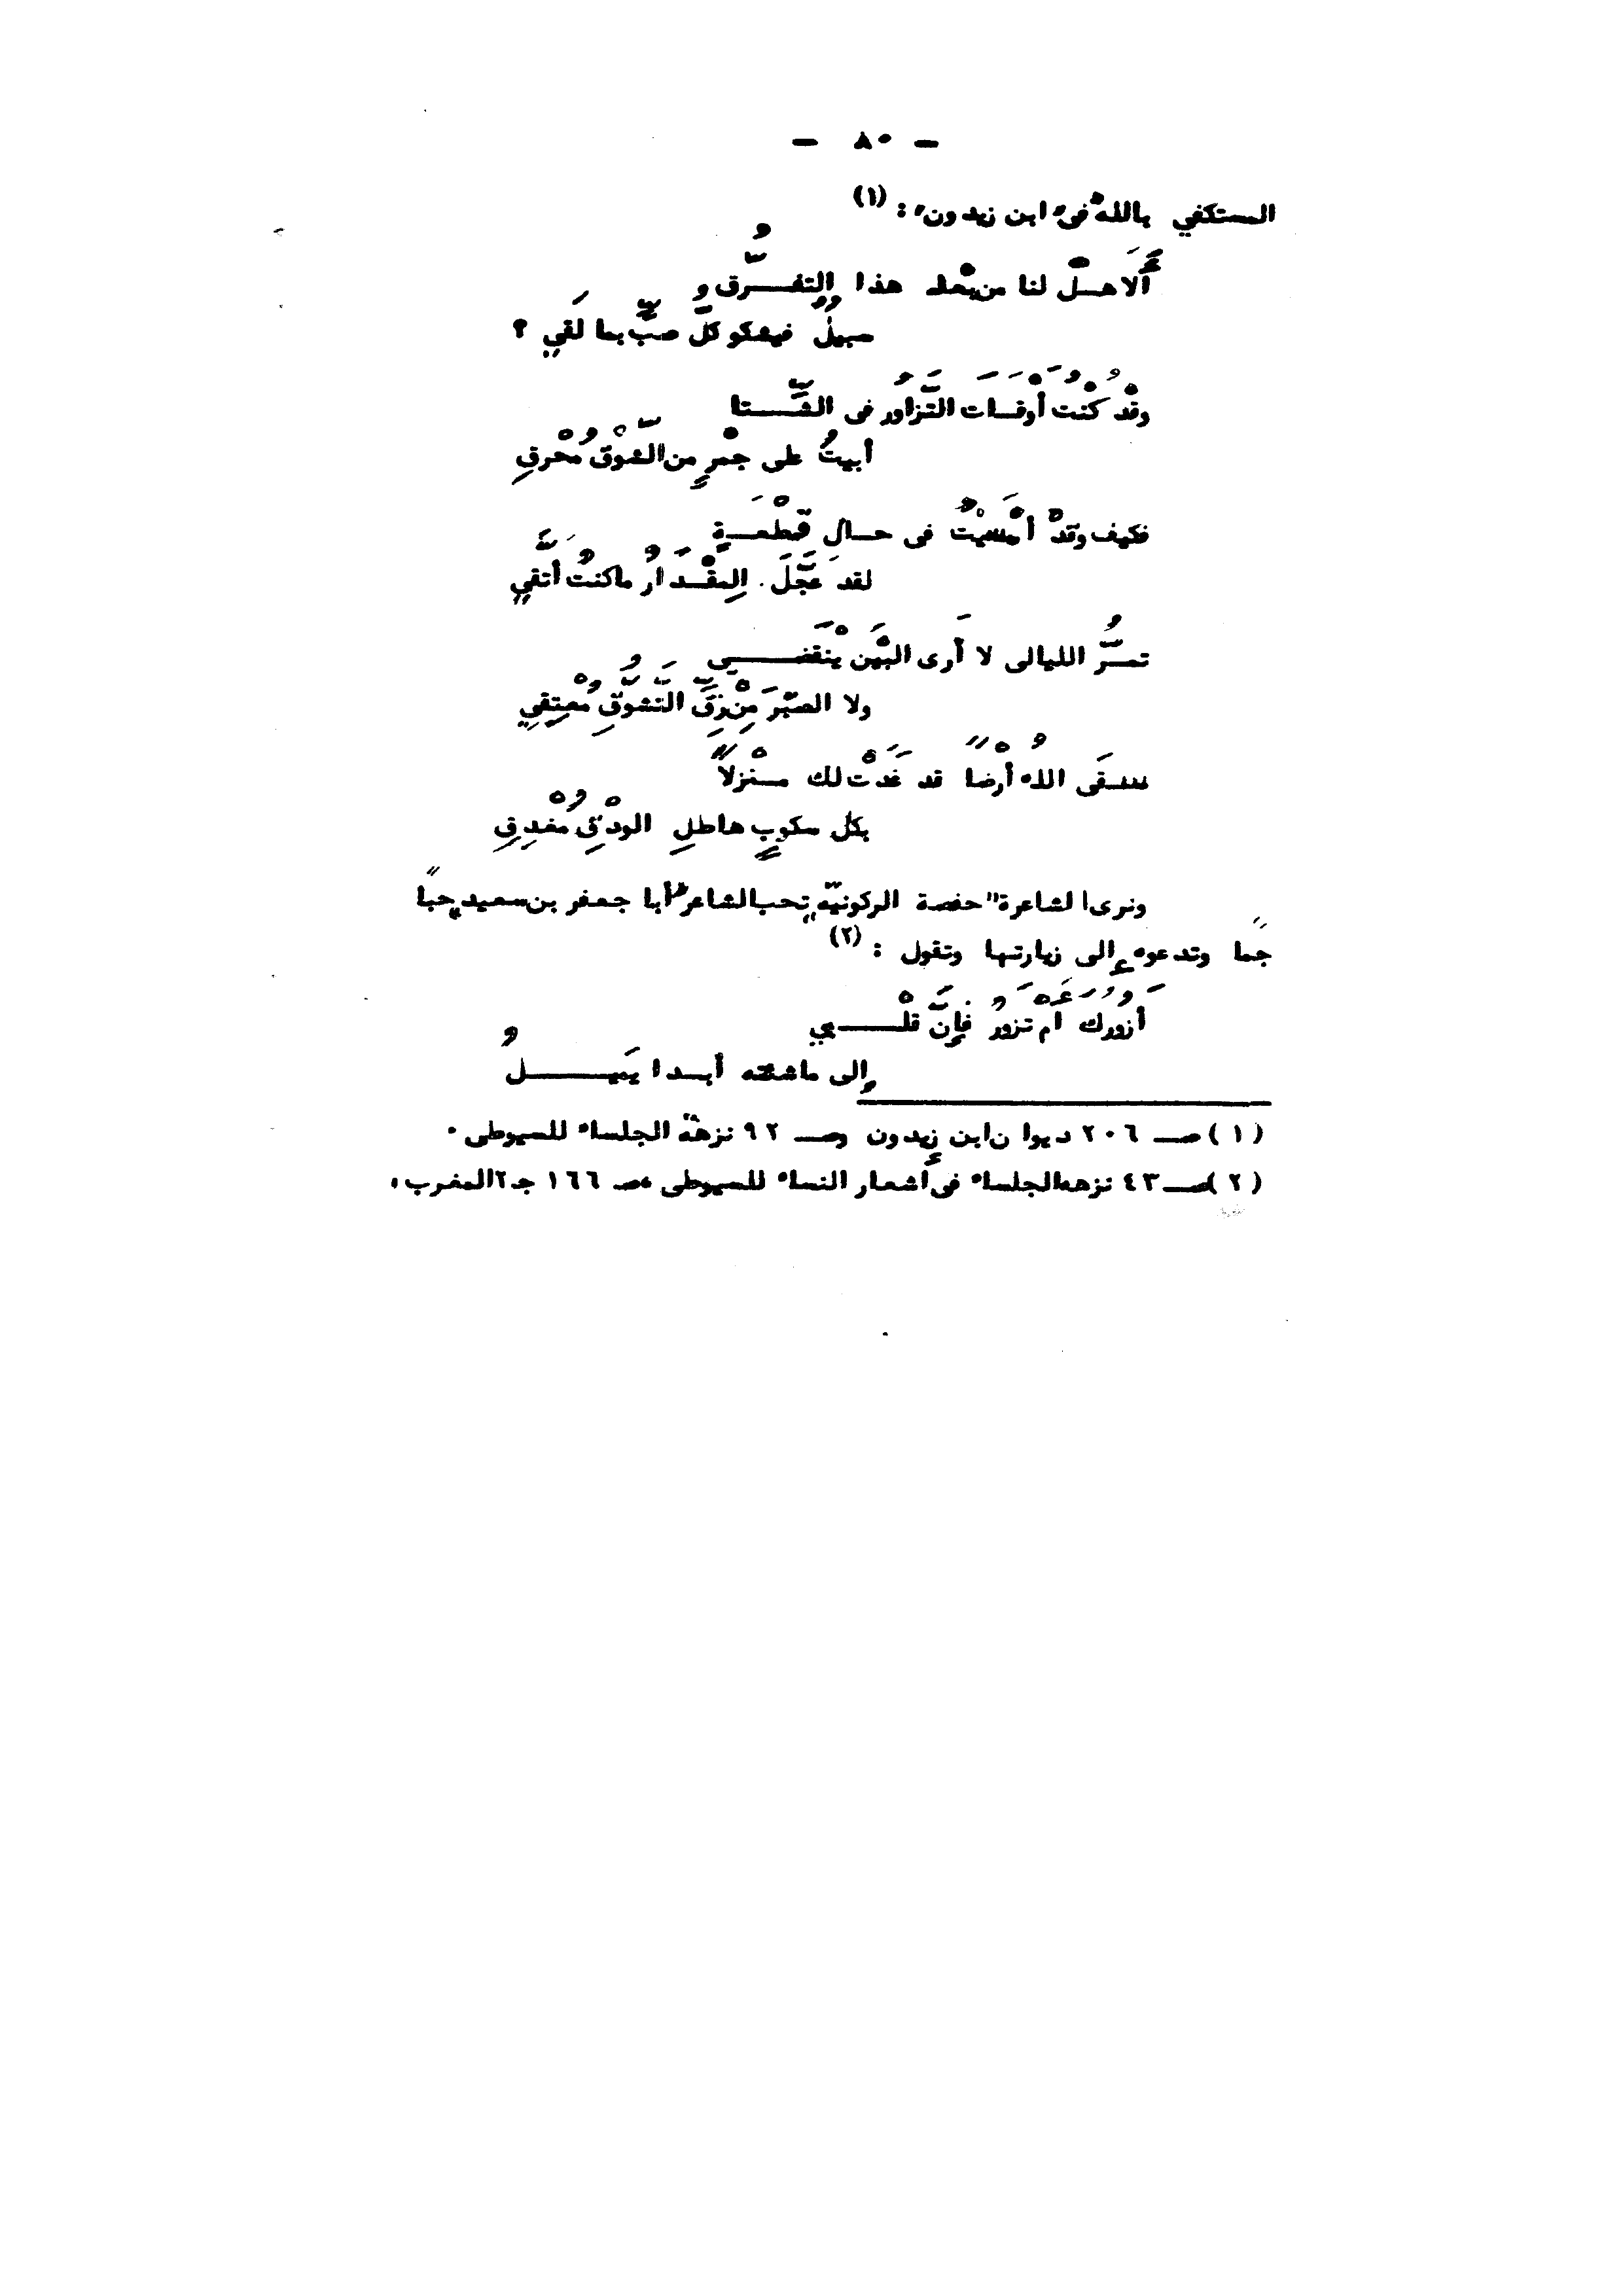 — ٨٠ —
المستكفي بالله فى ابن زيدون : (١)
ألا هــلْ لنا من بعد هذا التفــرُّق
سبيلٌ فيشكو كلُّ صبٍّ بما لَقي ؟
وقدْ كنْت أوقــات التَّزاور فى الشِّــتا
أبيتُ على جمْرٍ من الشّوْق مُحْرقِ
فكيف وقدْ أمْسَيْتُ فى حــال قطْعــةٍ
لقد عَجَّلَ المِقْــدَارُ ماكنتُ أتَّقي
تمــرُّ الليالى لا أَرى البَيْن ينْقَضــي
ولا الصّبْرَ مِنْ رِقِّ التَّشوّقِ مُعْتِقي
ســقَى الله أُرْضًا قد غَدَتْ لك مــنْزلاً
بكل سكوبٍ هاطلِ الودْقِ مُغْدِقِ
ونرى الشاعرة "حفصة الركونيّة" تحب الشاعر "أبا جعفر بن سعيد" حبًا
جمًا وتدعوه إلى زيارتها وتقول : (٢)
أَزُورُكَ أَمْ تَزورُ فإنَّ قلْــبي
إلى ماشئته أبــدا يَميــلُ
(١) صــ ٢٠٦ ديوان ابن زيدون وصــ ٩٢ نزهة الجلساء للسيوطى .
(٢) صــ ٤٣ نزهة الجلساء فى أشعار النساء للسيوطى ، صـ ١٦٦ جـ ٢ المغرب .